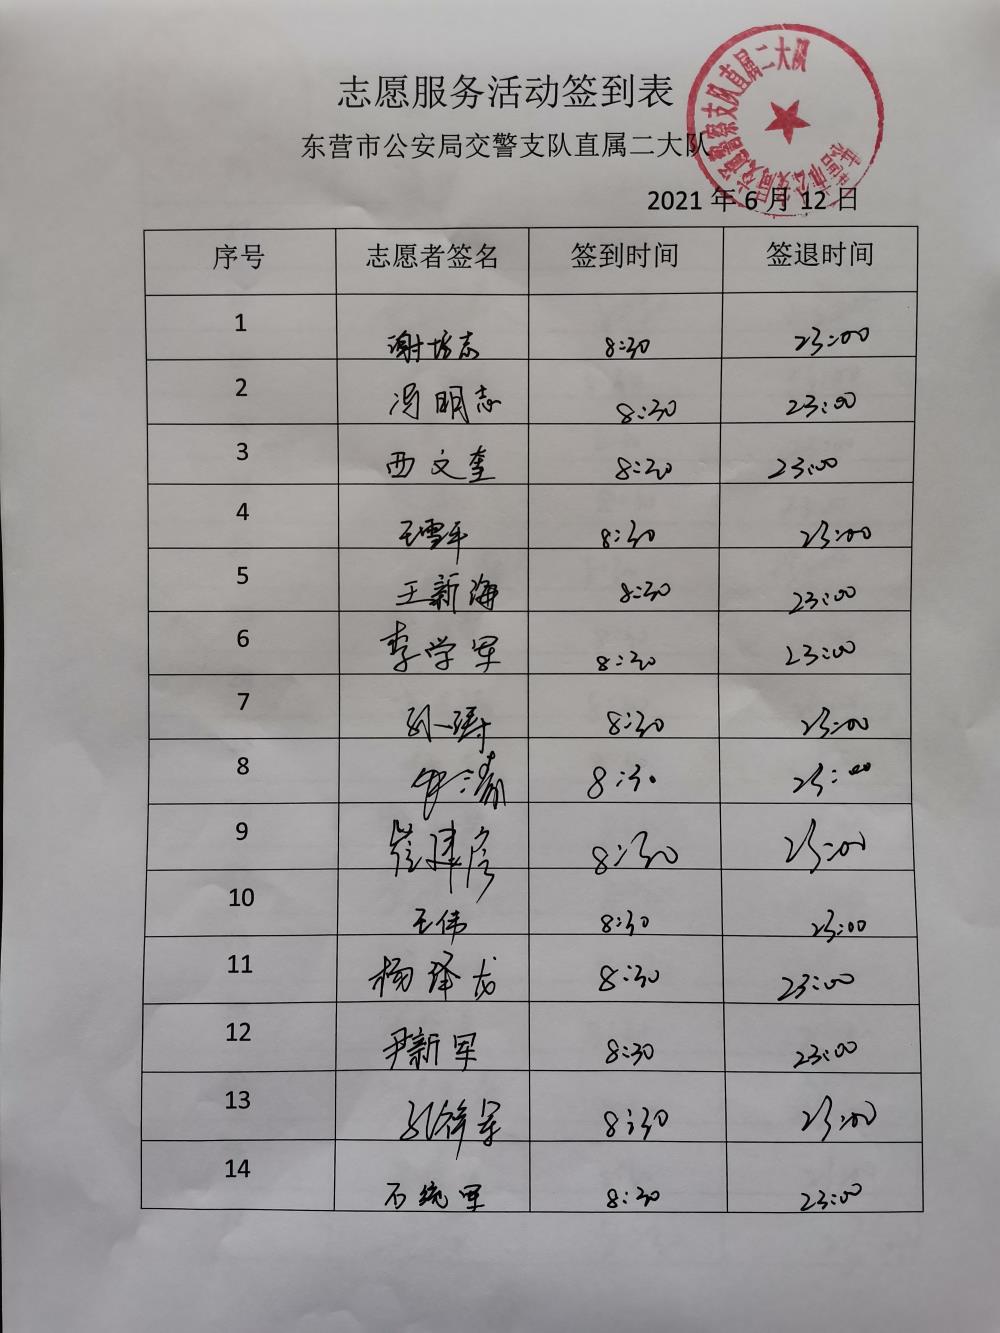 志愿服务活动签到表
东营市公安局交警支队直属二大队
2021 年 6 月 12 日
序号 志愿者签名 签到时间 签退时间
1 谢培志 8:30 23:00
2 冯明志 8:30 23:00
3 西文奎 8:30 23:00
4 王雪平 8:30 23:00
5 王新海 8:30 23:00
6 李学军 8:30 23:00
7 孙涛 8:30 23:00
8 8:30 23:00
9 崔建 8:30 23:00
10 王伟 8:30 23:00
11 杨泽龙 8:30 23:00
12 尹新军 8:30 23:00
13 8:30 23:00
14 石统军 8:30 23:00